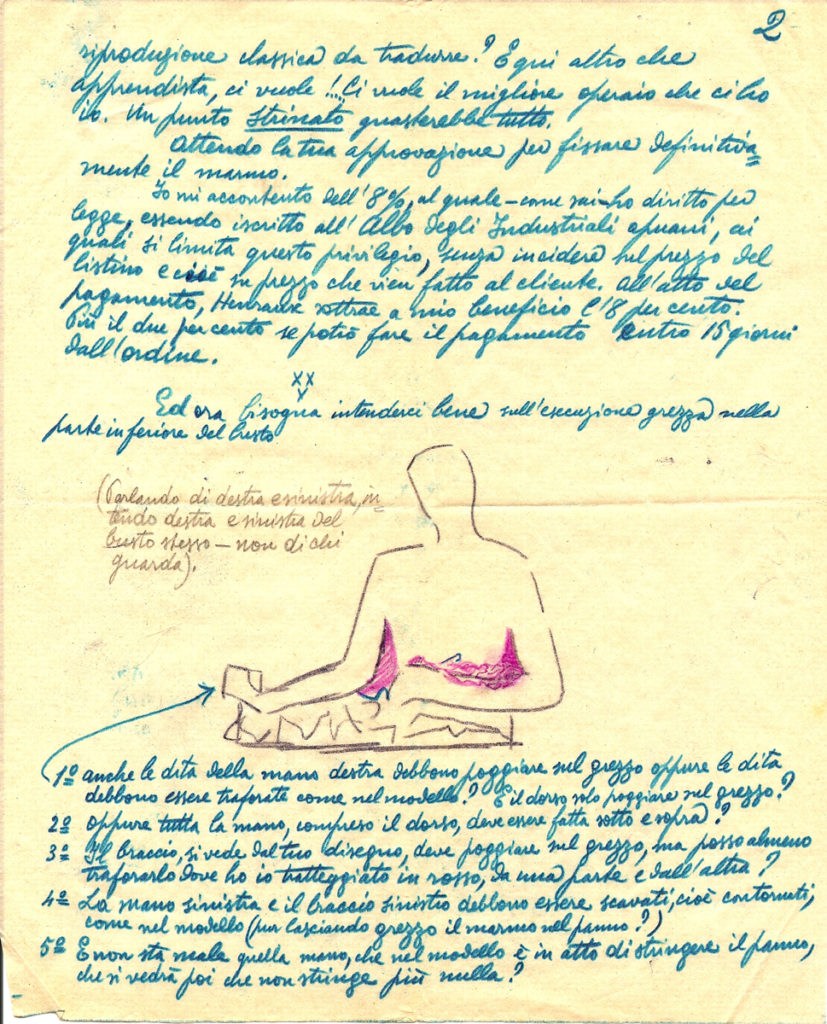 2
riproduzione classica da tradurre? E qui altro che
apprendista, ci vuole!... Ci vuole il migliore operaio che ci ho
io. Un punto strinato guasterebbe tutto.
Attendo la tua approvazione per fissare definitiva=
mente il marmo.
Io mi accontento dell'8%, al quale – come sai – ho diritto per
legge, essendo iscritto all'Albo degli Industriali apuani, ai
quali si limita questo privilegio, senza incidere sul prezzo del
listino e cioè su prezzo che vien fatto al cliente. All'atto del
pagamento, Henraux sottrae a mio beneficio l'8 per cento.
Più il due per cento se potrò fare il pagamento entro 15 giorni
dall'ordine.
xx
Ed ora bisogna intenderci bene sull'esecuzione grezza nella
parte inferiore del busto
(Parlando di destra e sinistra, in=
tendo destra e sinistra del
busto stesso – non di chi
guarda).
1º anche le dita della mano destra debbono poggiare sul grezzo oppure le dita
debbono essere traforate come nel modello? E il dorso solo poggiare nel grezzo?
2º oppure tutta la mano, compreso il dorso, deve essere fatta sotto e sopra?
3º Il braccio, si vede dal tuo disegno, deve poggiare sul grezzo, ma posso almeno
traforarlo dove ho io tratteggiato in rosso, da una parte e dall'altra?
4º La mano sinistra e il braccio sinistro debbono essere scavati, cioè contornati,
come nel modello (pur lasciando grezzo il marmo nel panno?)
5º E non sta male quella mano, che nel modello è in atto di stringere il panno,
che si vedrà poi che non stringe più nulla?